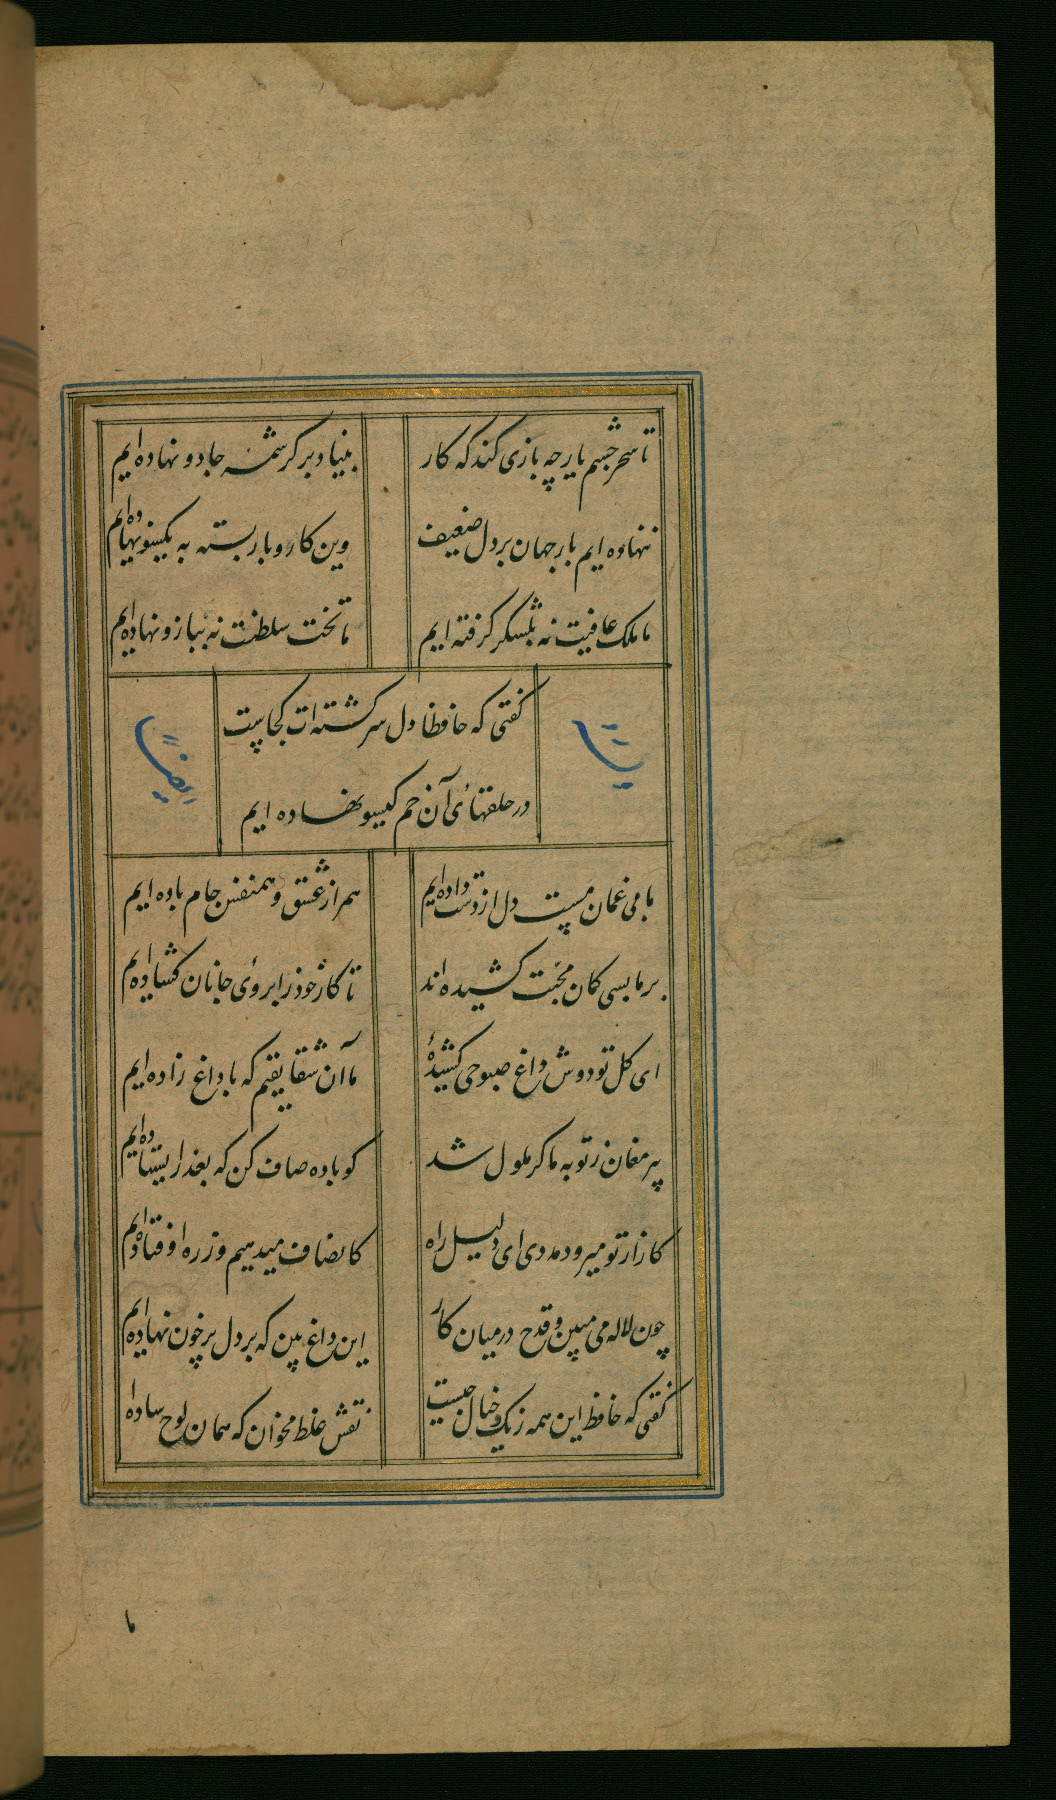 تا سحر چشم یار چه بازی کند که کار
بنیاد بر کرشمه جادو نهاده ایم
ننهاده ایم بار جهان بر دل ضعیف
وین کار و بار بسته به یکسو نهاده ایم
ما ملک عافیت نه بلشکر گرفته ایم
ما تخت سلطنت نه ببازو نهاده ایم
گفتی که حافظا دل سرگشته ات کجاست
در حلقهای آن خم گیسو نهاده ایم
ایضاً
ما می غمان مست دل از دست داده ایم
همراز عشق و همنفس جام باده ایم
بر ما بسی کمان محبت کشیده اند
تا کار خود ز ابروی جانان کشاده ایم
ای گل تو دوش داغ صبوحی کشیدهٔ
ما آن شقایقیم که با داغ زاده ایم
پیر مغان ز توبه ما کر ملول شد
کو باده صاف کن که بعذر ایستاده ایم
کار از تو میرود مددی ای دلیل راه
کانصاف میدهیم و ز ره اوفتاده ایم
چون لاله می مبین و قدح در میان کار
این داغ بین که بر دل پر خون نهاده ایم
گفتی که حافظ این همه رنگ و خیال چیست
نقش غلط مخوان که همان لوح ساده ا
ما